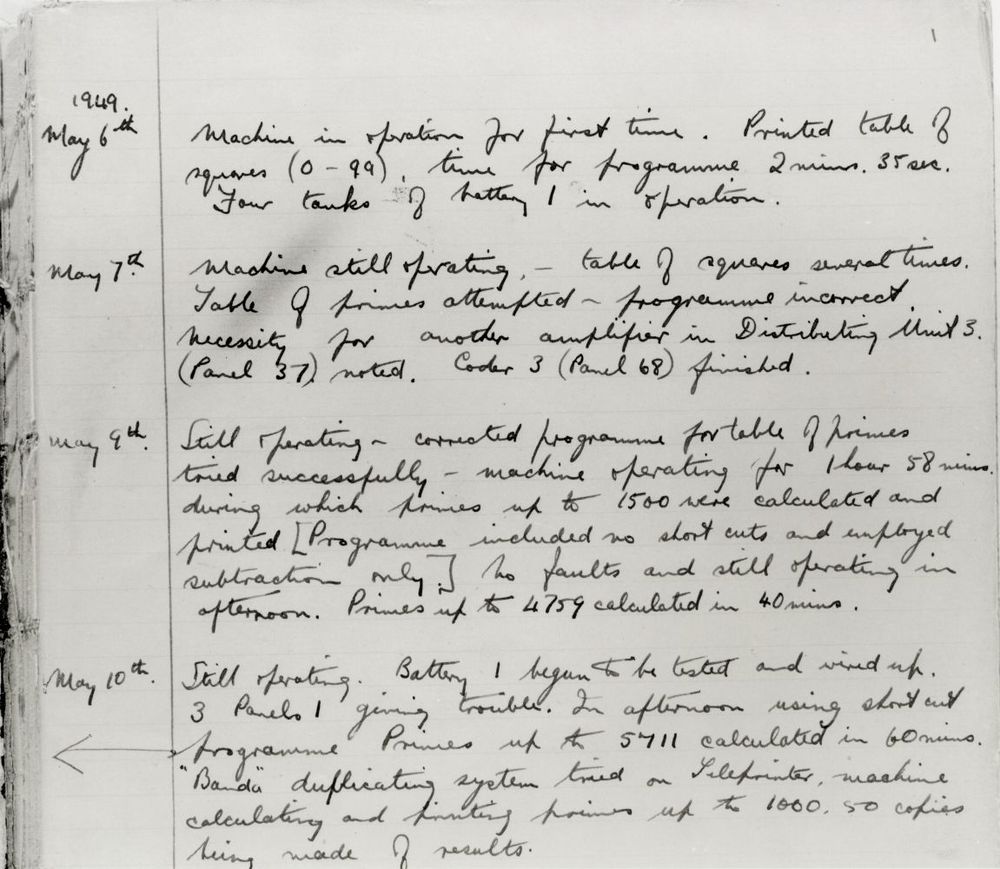 1
1949.
May 6th Machine in operation for first time. Printed table of
squares (0 - 99), time for programme 2 mins. 35 sec.
Four tanks of battery 1 in operation.
May 7th. Machine still operating, - table of squares several times.
Table of primes attempted - programme incorrect.
Necessity for another amplifier in Distributing Unit 3.
(Panel 37) noted. Coder 3 (Panel 68) finished.
May 9th. Still operating - corrected programme for table of primes
tried successfully - machine operating for 1 hour 58 mins.
during which primes up to 1500 were calculated and
printed [Programme included no short cuts and employed
subtraction only.] No faults and still operating in
afternoon. Primes up to 4759 calculated in 40 mins.
May 10th. Still operating. Battery 1 begun to be tested and wired up.
3 Panels 1 giving trouble. In afternoon using short cut
programme Primes up to 5711 calculated in 60 mins.
"Banda" duplicating system tried on Teleprinter, machine
calculating and printing primes up to 1000. 50 copies
being made of results.